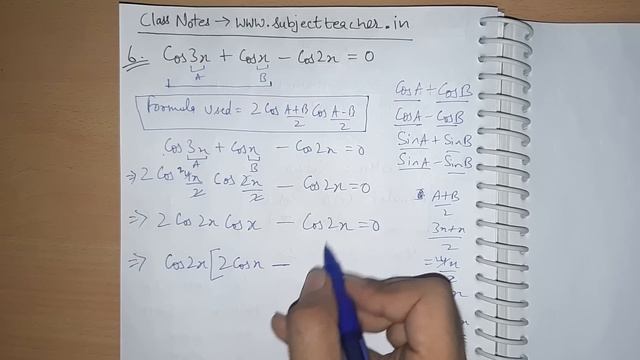 Class Notes → www.subjectteacher.in
6. Cos3x + Cosx − Cos2x = 0
A B
Formula used = 2 Cos A+B/2 Cos A−B/2
Cos3x + Cosx − Cos2x = 0
A B
⇒ 2 Cos 4x/2 Cos 2x/2 − Cos2x = 0
⇒ 2 Cos 2x Cos x − Cos2x = 0
⇒ Cos2x [ 2Cosx −
CosA + CosB
CosA − CosB
SinA + SinB
SinA − SinB
A+B/2
3x+x/2
= 4x/2